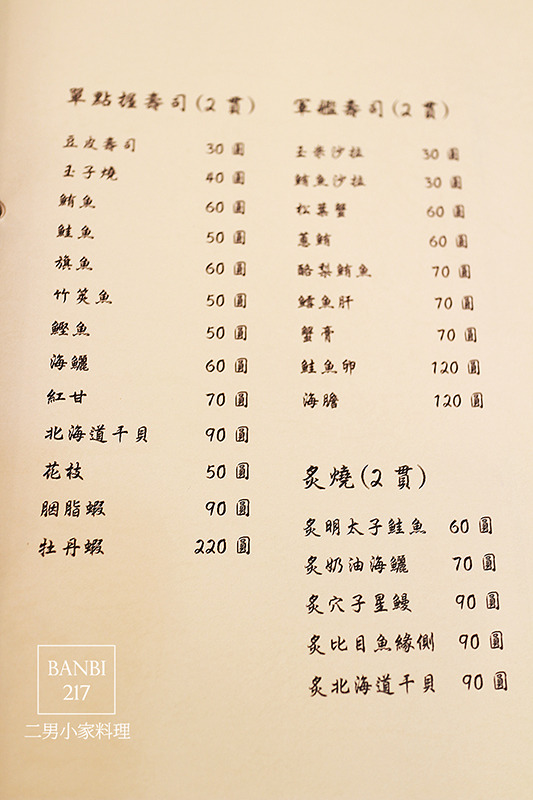 單點握壽司(2 貫)
豆皮壽司 30 圓
玉子燒 40 圓
鮪魚 60 圓
鮭魚 50 圓
旗魚 60 圓
竹筴魚 50 圓
鰹魚 50 圓
海鱺 60 圓
紅甘 70 圓
北海道干貝 90 圓
花枝 50 圓
胭脂蝦 90 圓
牡丹蝦 220 圓
軍艦壽司(2 貫)
玉米沙拉 30 圓
鮪魚沙拉 30 圓
松葉蟹 60 圓
蔥鮪 60 圓
酪梨鮪魚 70 圓
鱈魚肝 70 圓
蟹膏 70 圓
鮭魚卵 120 圓
海膽 120 圓
炙燒(2 貫)
炙明太子鮭魚 60 圓
炙奶油海鱺 70 圓
炙穴子星鰻 90 圓
炙比目魚緣側 90 圓
炙北海道干貝 90 圓
BANBI
217
二男小家料理